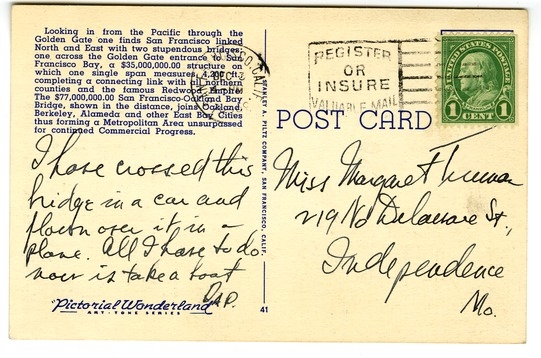 Looking in from the Pacific through the
Golden Gate one finds San Francisco linked
North and East with two stupendous bridges,
one across the Golden Gate entrance to San
Francisco Bay, a $35,000,000.00 structure on
which one single span measures 4,200 ft.,
completing a connecting link with all northern
counties and the famous Redwood Empire.
The $77,000,000.00 San Francisco-Oakland Bay
Bridge, shown in the distance, joins Oakland,
Berkeley, Alameda and other East Bay Cities
thus forming a Metropolitan Area unsurpassed
for continued Commercial Progress.
I have crossed this
bridge in a car and
flown over it in a
plane. All I have to do
now is take a boat
Dad.
"Pictorial Wonderland"
ART-TONE SERIES
STANLEY A. PILTZ COMPANY, SAN FRANCISCO, CALIF.
41
REGISTER
OR
INSURE
VALUABLE MAIL
UNITED STATES POSTAGE
1 CENT 1
POST CARD
Miss Margaret Truman
219 No Delaware St.,
Independence
Mo.